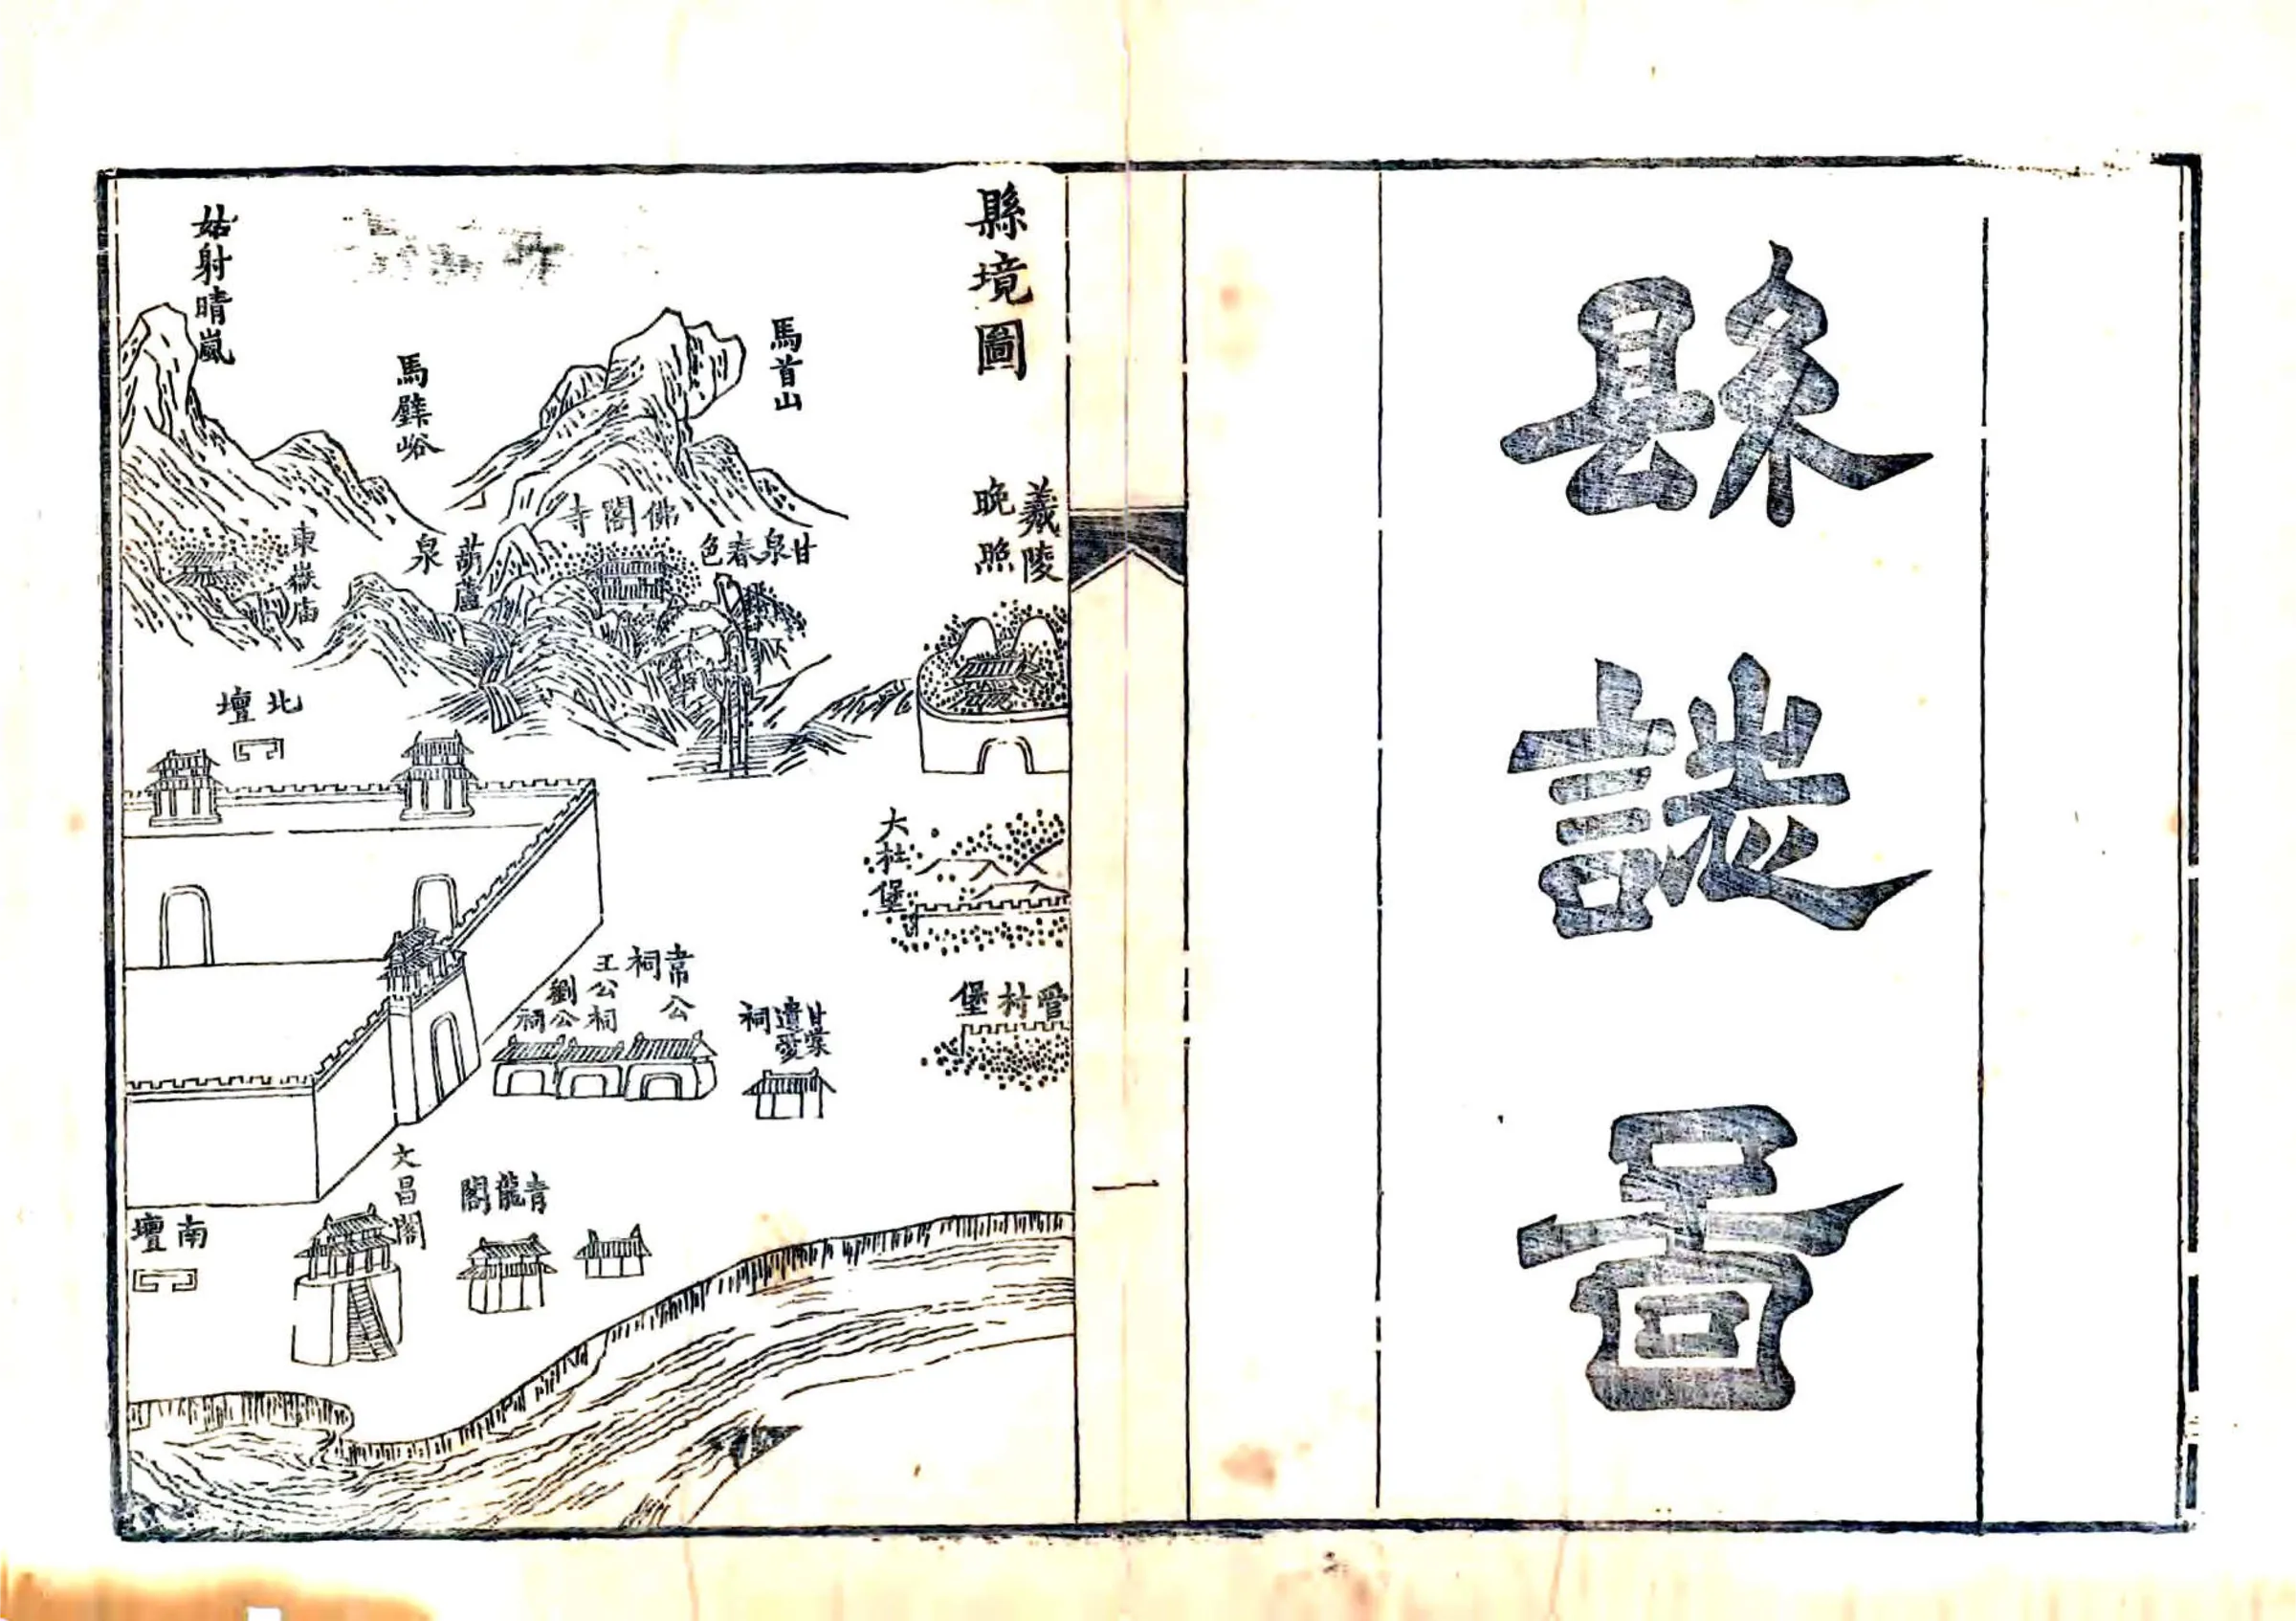 縣誌啚
一
縣境圖
羲陵
晚照
大杜堡
管村堡
馬首山
甘泉春色
佛閣寺
葫蘆
泉
馬壁峪
姑射晴嵐
東嶽廟
北壇
韋公
祠
王公祠
劉公祠
甘棠
遺愛
祠
青龍閣
文昌閣
南壇